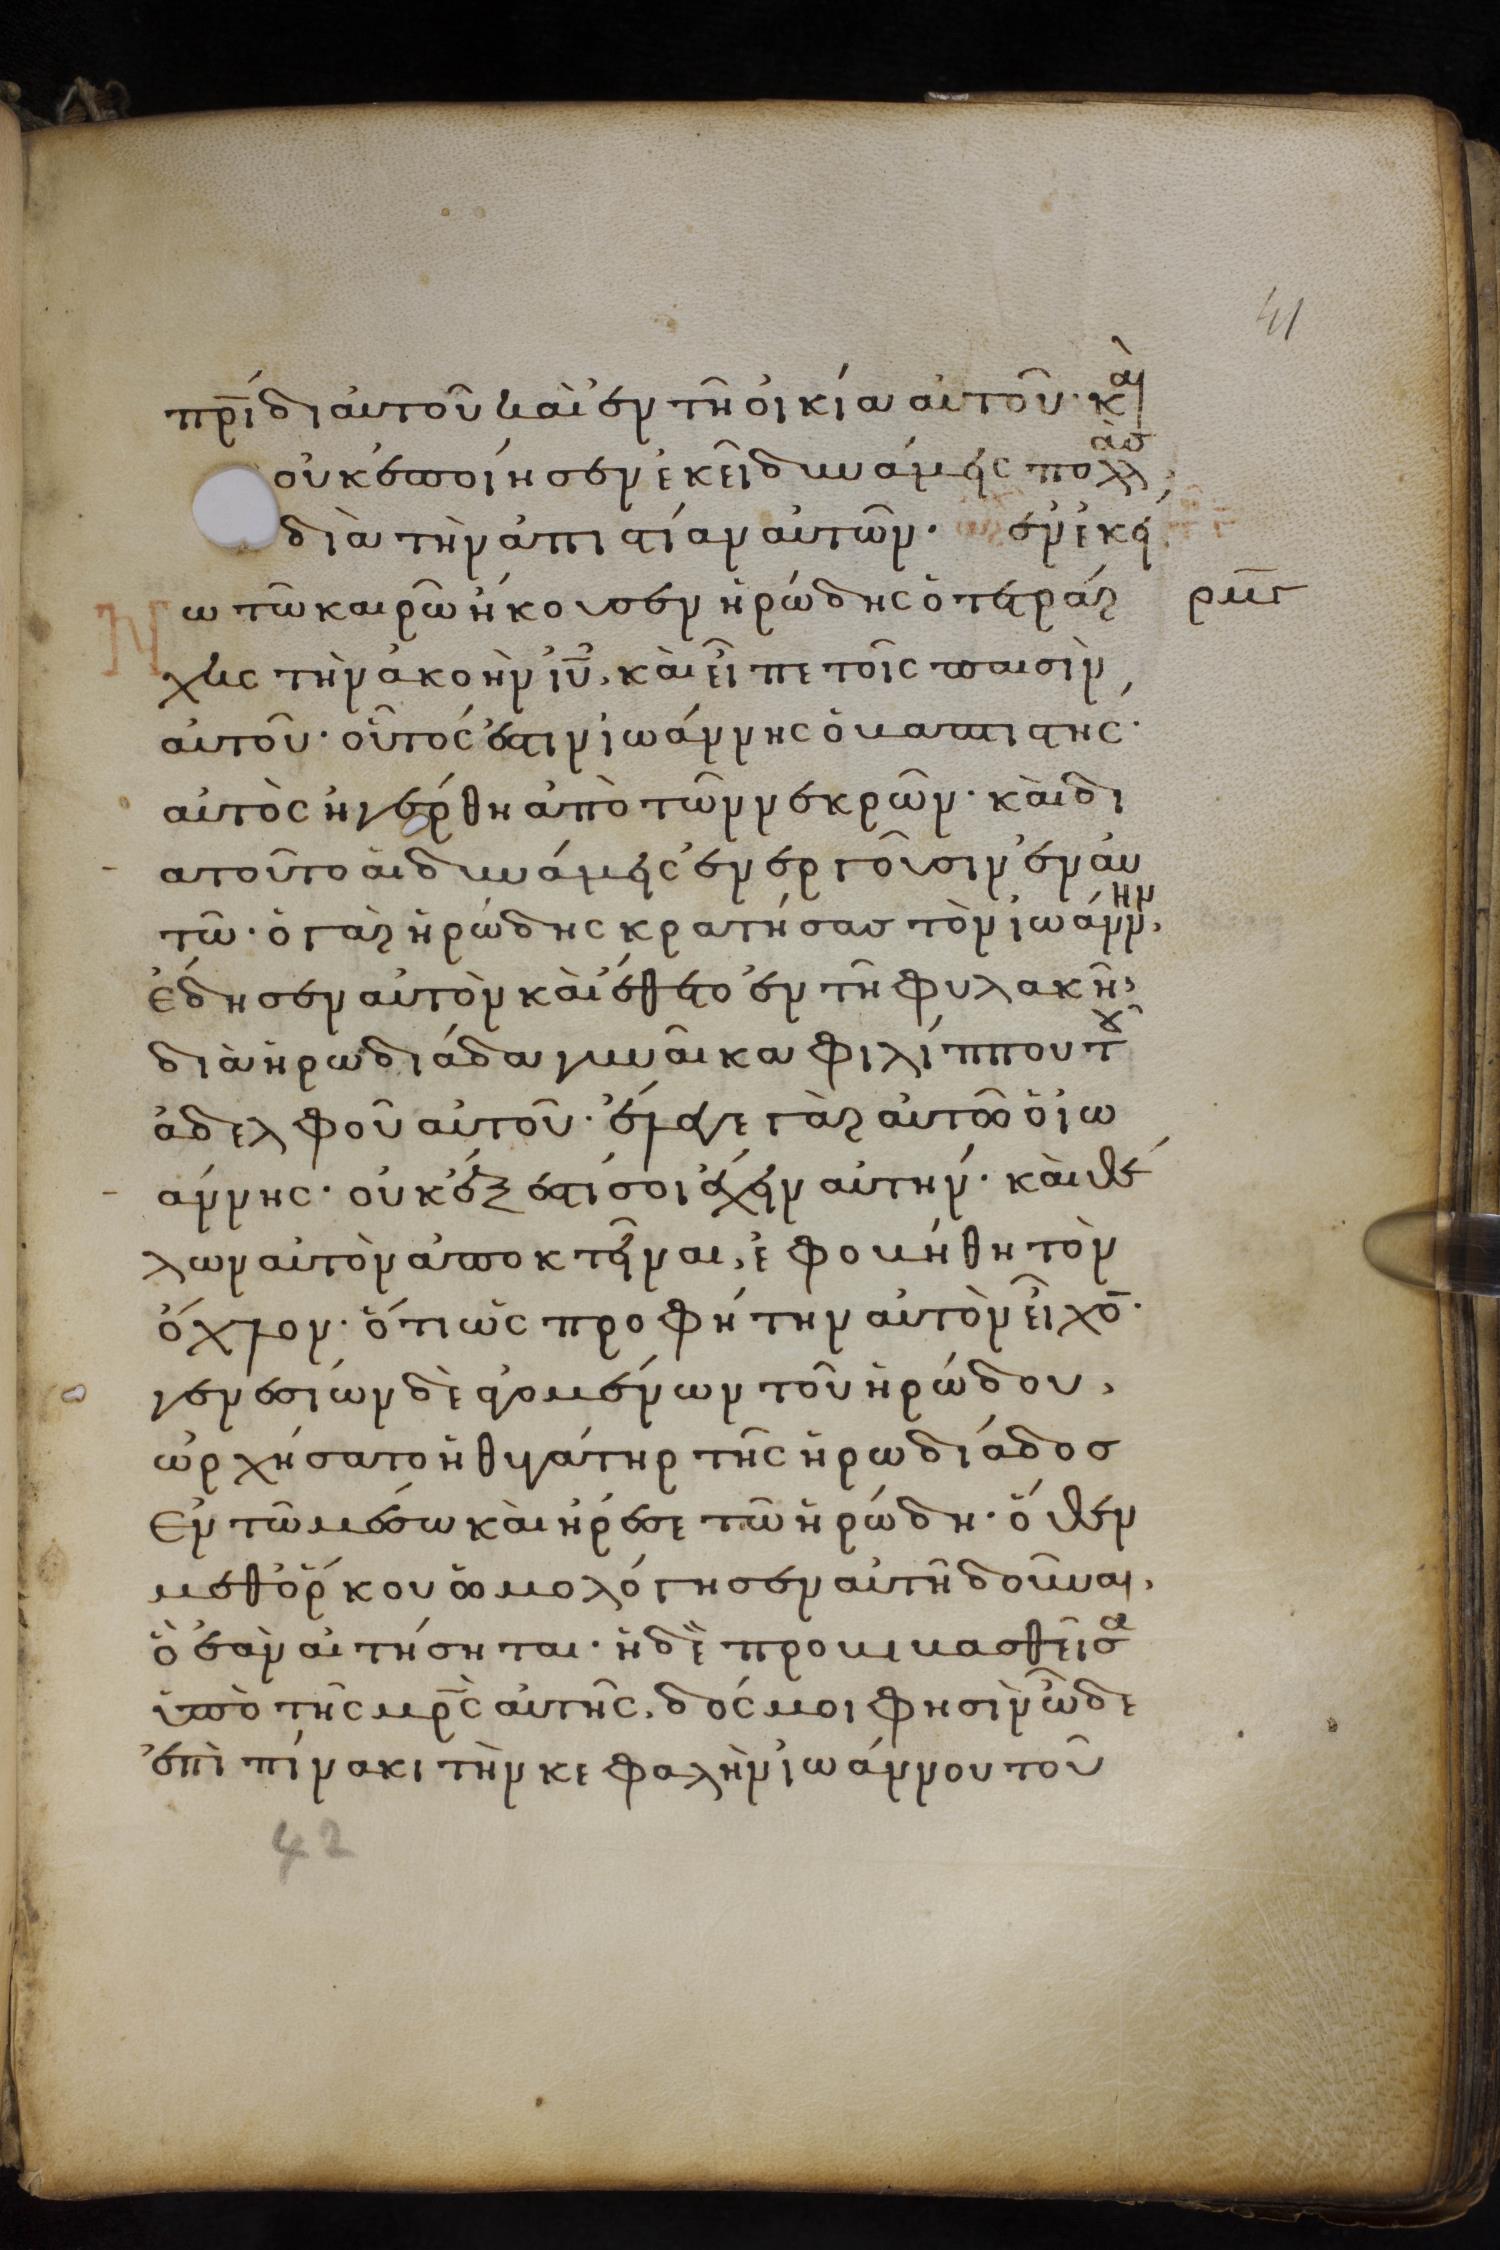 41
πρ̅ίδι αὐτοῦ καὶ ἐν τῆ οἰκία αὐτοῦ· κὰι
οὐκ ἐποίησεν ἐκεῖ δυνάμεις πολλὰσ,
διὰ τὴν ἀπιστίαν αὐτῶν· ἐν ἐκεί
νω τῶ καιρῶ ἤκουσεν ἡρώδης ὁ τετράρ
ρμγ
χης τὴν ἀκοὴν ἰῦ, κὰι εἶπε τοῖς παισὶν
αὐτοῦ· οὗτός ἐστιν ἰωάννης ὁ βαπτιστής·
αὐτὸς ἠγέρθη ἀπὸ τῶν νεκρῶν· κὰι δι
ατοῦτο ἁι δυνάμεις ἐνεργοῦσιν ἐν ἀυ
τῶ· ὁ γὰρ ἡρώδης κρατήσασ τὸν ἰωάννην,
ἔδησεν αὐτὸν κὰι ἔθετο ἐν τῆ φυλακῆ,
διὰ ἡρωδιάδα γυναῖκα φιλίππου τοῦ
ἀδελφοῦ αὐτοῦ· ἔλεγε γὰρ αὐτῶ ὁ ἰω
άννης· οὐκ ἔξεστί σοι ἔχειν αὐτήν· κὰι θέ
λων αὐτὸν ἀποκτεῖναι, ἐφοβήθη τὸν
ὄχλον· ὅτι ὡς προφήτην αὐτὸν εἶχο̅·
γενεσίων δὲ ἀγομένων τοῦ ἡρώδου,
ὠρχήσατο ἡ θυγάτηρ τῆς ἡρωδιάδοσ
Ἐν τῶ μέσω κὰι ἤρεσε τῶ ἡρώδη· ὅθεν
μεθ ὅρκου ὡμολόγησεν αὐτῆ δοῦναι,
ὃ ἐὰν αἰτήσηται· ἡ δὲ προβιβασθεῖσα
ὑπὸ τῆς μρ̅ὸς αὐτῆς, δός μοι φησὶν ὧδε
ἐπὶ πίνακι τὴν κεφαλὴν ἰωάννου τοῦ
42